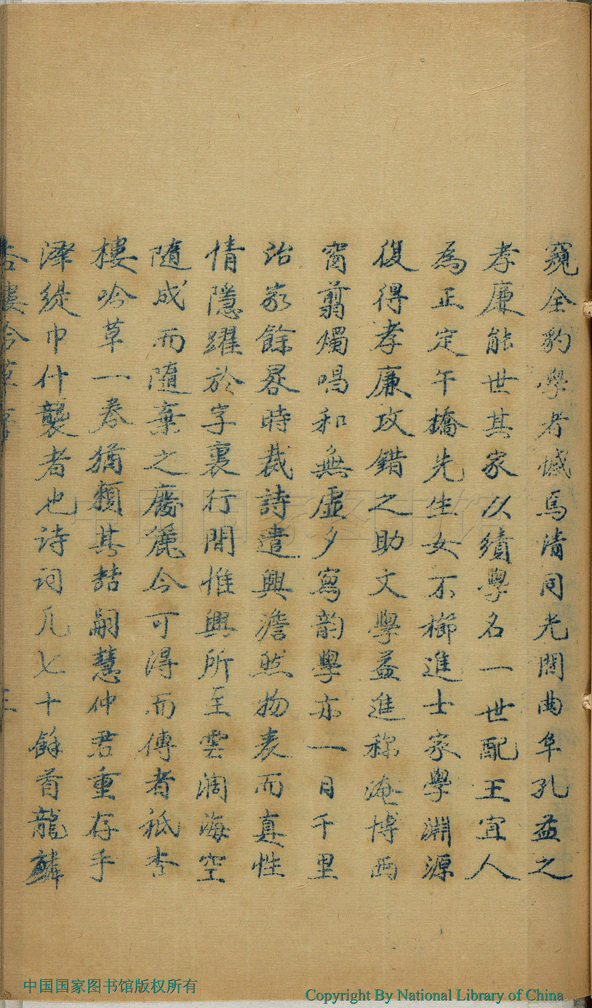 窺全豹學者憾焉清同光間曲阜孔益之
孝廉能世其家以績學名一世配王宜人
為正定午橋先生女不櫛進士家學淵源
復得孝廉攻錯之助文學益進称淹博西
窗翦燭唱和無虛夕寫韵學亦一日千里
治家餘晷時裁詩遣興澹然物表而真性
情隱躍於字裏行間惟興所至雲涸海空
隨成而隨棄之慶麗今可淂而傳者祇杏
樓吟草一卷猶賴其喆嗣慧仲君重存手
澤緹巾什襲者也詩词凡七十餘首龍鱗
杏樓吟草
中国国家图书馆版权所有
Copyright By National Library of China